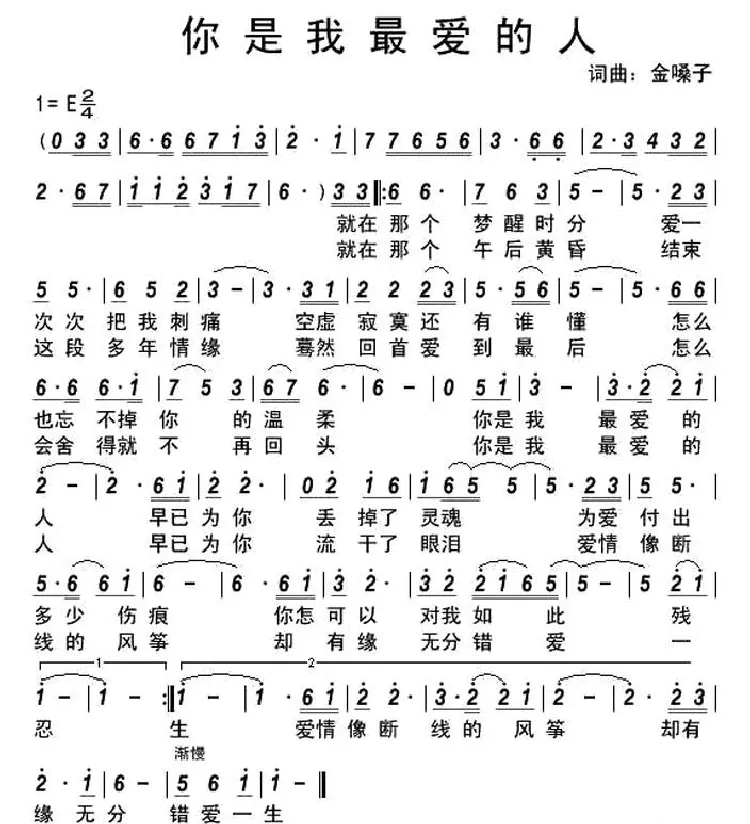 你是我最爱的人
词曲：金嗓子
1=E 2/4
(0 3 3 | 6·6 6 7 1 3 | 2·1 | 7 7 6 5 6 | 3·6 6 | 2·3 4 3 2 |
2·6 7 | 1 1 2 3 1 7 | 6·) 3 3 |: 6 6· | 7 6 3 | 5 - | 5·2 3 |
就在那个 梦醒时分 爱一
就在那个 午后黄昏 结束
5 5· | 6 5 2 | 3 - | 3·3 1 | 2 2 2 3 | 5·5 6 | 5 - | 5·6 6 |
次次把我刺痛 空虚寂寞还有谁懂 怎么
这段多年情缘 蓦然回首爱到最后 怎么
6·6 6·1 | 7 5 3 | 6 7 6· | 6 - | 0 5 1 | 3 - | 3·2 2 1 |
也忘不掉你的温柔 你是我 最爱的
会舍得就不再回头 你是我 最爱的
2 - | 2·6 1 | 2 2· | 0 2 1 6 | 1 6 5 5 | 5·2 3 | 5 5· |
人 早已为你 丢掉了灵魂 为爱付出
人 早已为你 流干了眼泪 爱情像断
5·6 6 6 1 | 6 - | 6·6 1 | 3 2· | 3 2 2 1 6 5 | 5 - | 5 2 1 |
多少伤痕 你怎可以 对我如此 残
线的风筝 却有缘 无分错爱 一
1 2
1 - | 1 - :| 1 - | 1·6 1 | 2 2· | 3·2 2 2 1 | 2 - | 2·2 3 |
忍 生 爱情像断线的风筝 却有
渐慢
2·1 | 6 - | 5 6 1 | 1 - ‖
缘无分 错爱一生